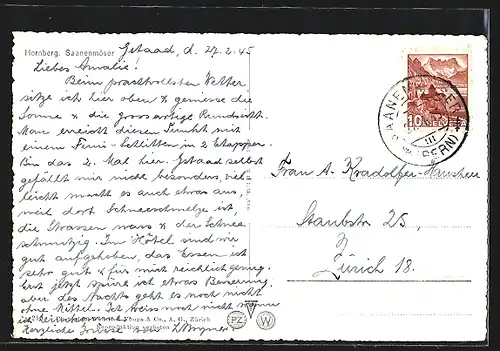 Hornberg, Saanenmöser
Gstaad, d. 27.2.45
Liebes Amalie!
Beim prachtvollsten Wetter
sitze ich hier oben & geniesse die
Sonne & die grossartige Rundsicht.
Man erreicht diesen Punkt mit
einem Funi-Schlitten in 2 Etappen.
Bin das 2. Mal hier. Gstaad selbst
gefällt mir nicht besonders, viel
leicht macht es auch etwas aus,
weil dort Schneeschmelze ist,
die Strassen nass & der Schnee
schmutzig. Im Hôtel sind wir
gut aufgehoben, das Essen ist
sehr gut & für mich reichlich genug.
Erst jetzt spüre ich etwas Besserung,
aber des Nachts geht es noch nicht
ohne Mittel. Ich weiss noch nicht wann
ich
Herzliche Grüsse
& Co., A. G., Zürich
Reproduktion verboten
PZ
W
10
SAANENMÖSER
(BERN)
Frau A. Kradolfer-Hanslin
Staubstr 25,
Zürich 18.